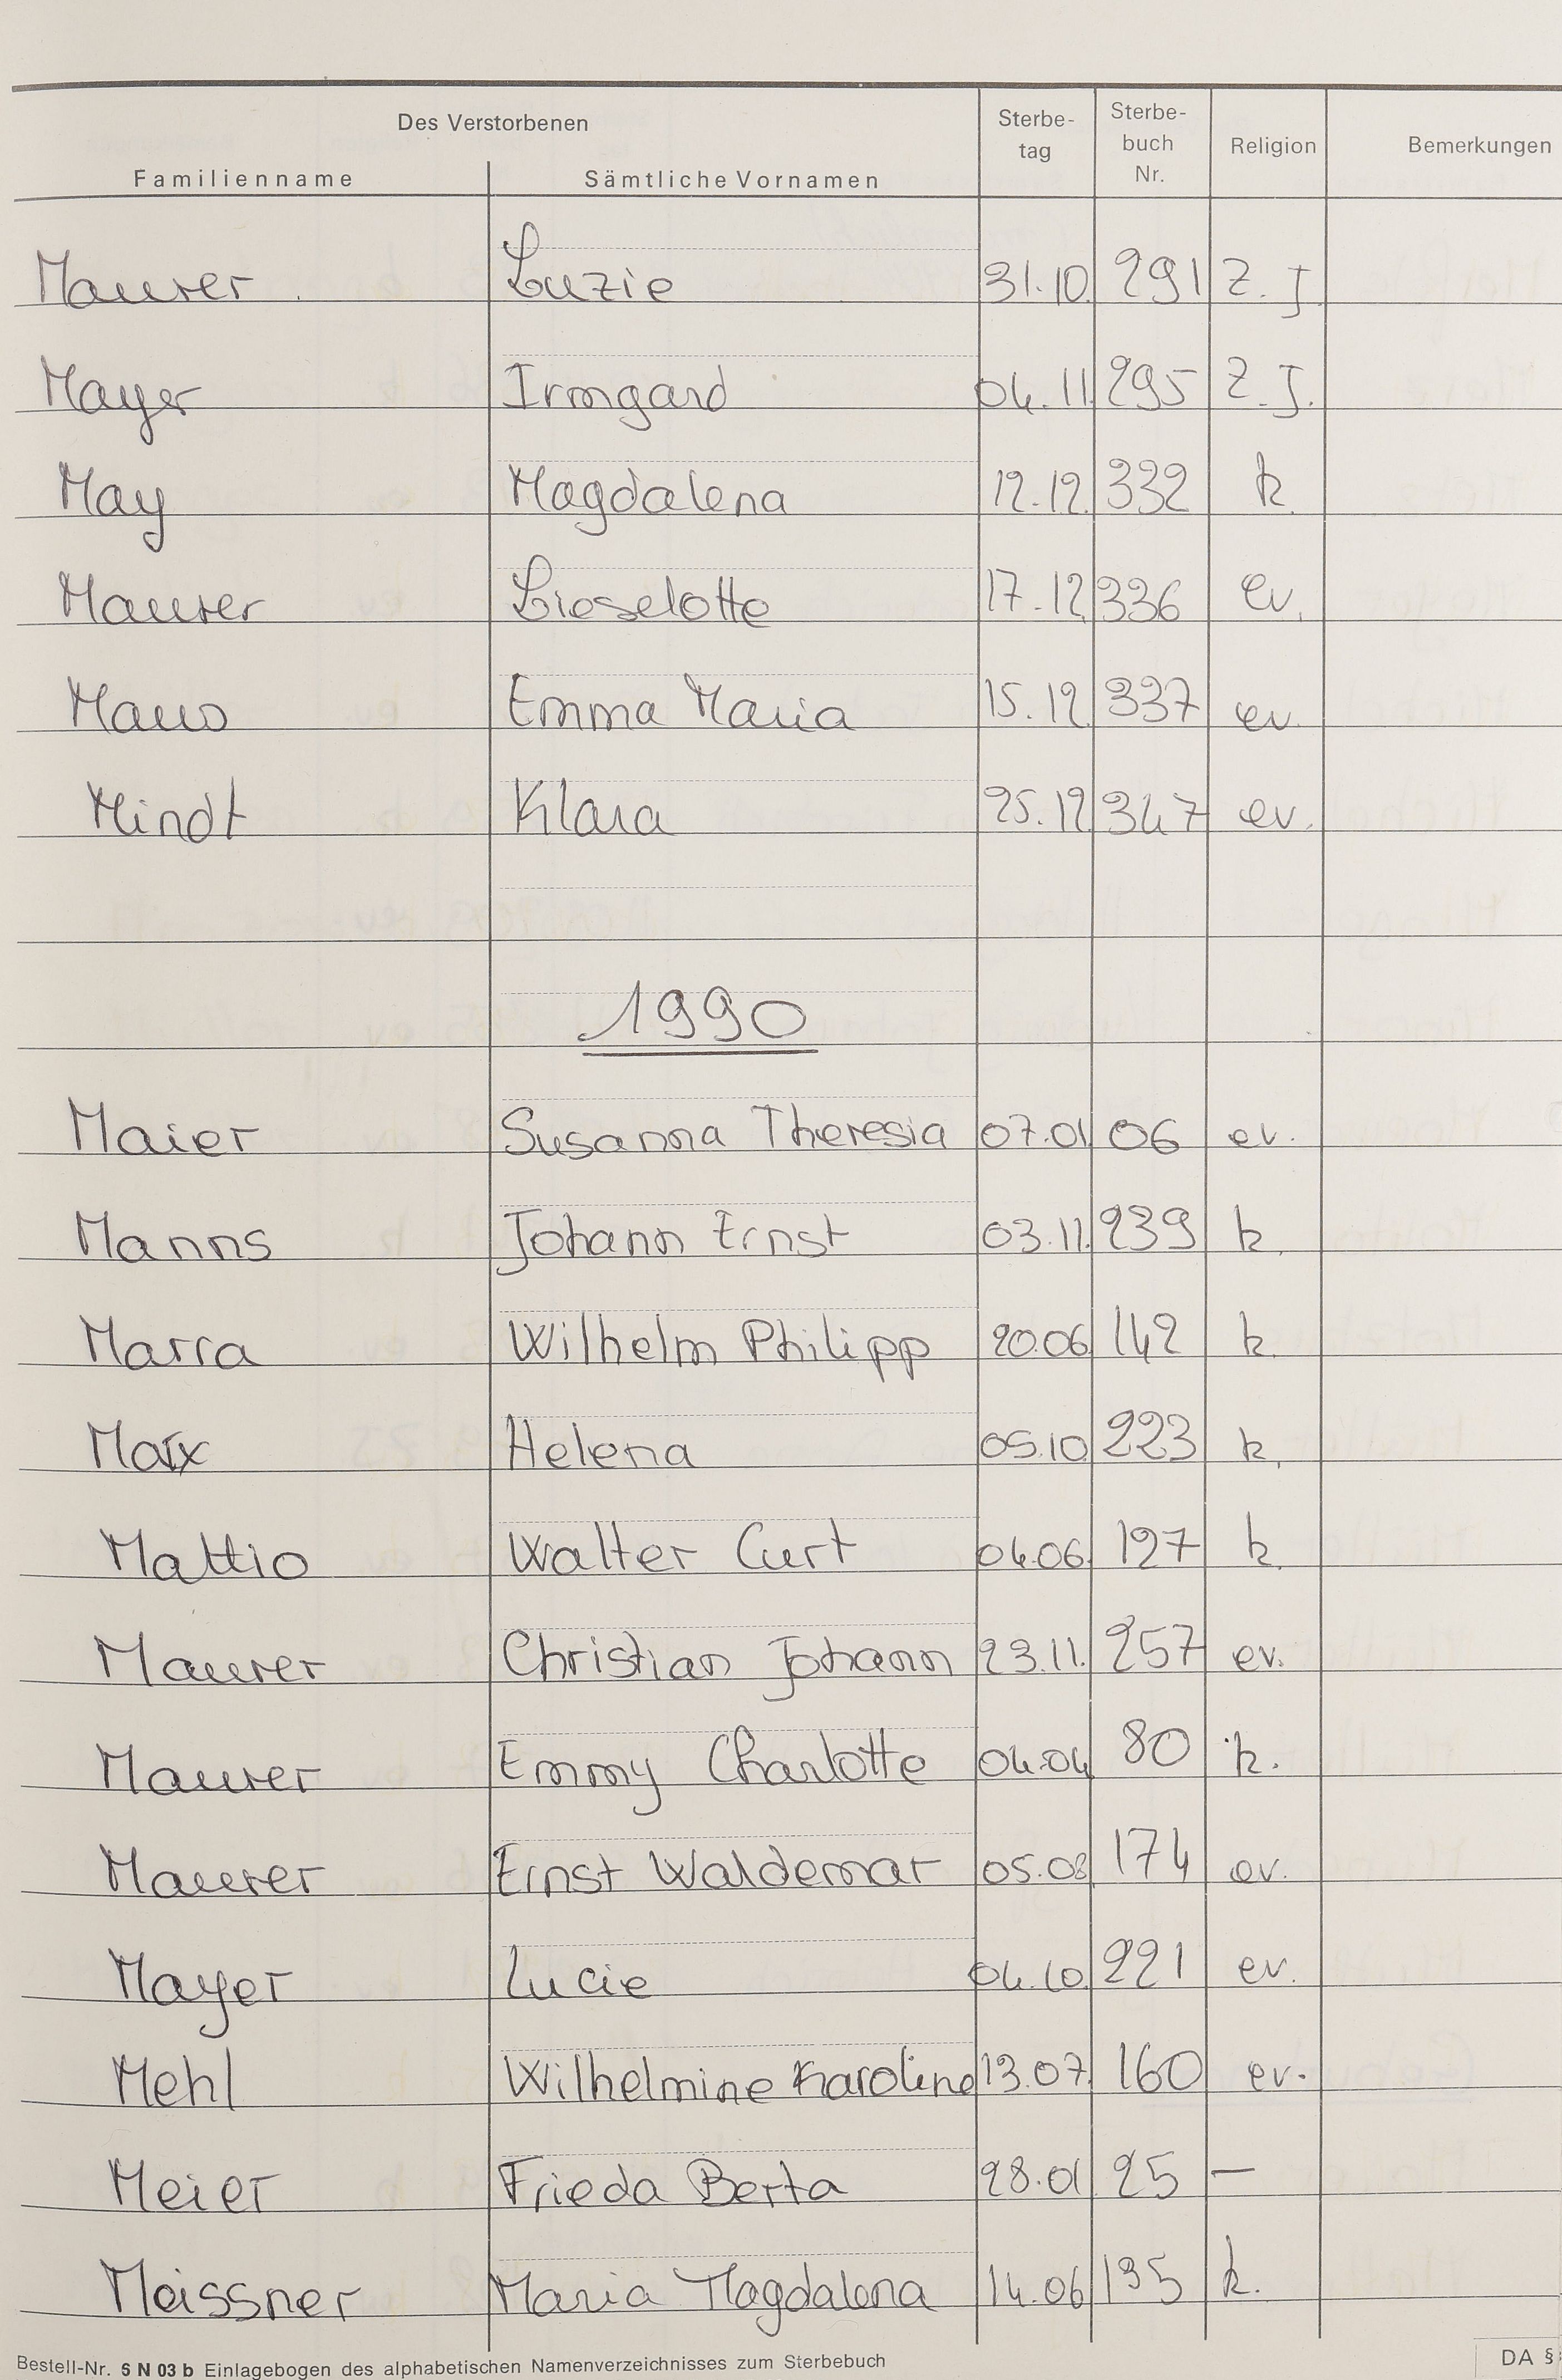 Des Verstorbenen
Familienname Sämtliche Vornamen Sterbe-tag Sterbe-buch Nr. Religion Bemerkungen
Maurer Luzie 31.10. 291 Z. J.
Mayer Irmgard 04.11. 295 Z. J.
May Magdalena 12.12. 332 k.
Maurer Lieselotte 17.12. 336 ev.
Maus Emma Maria 15.12. 337 ev.
Mindt Klara 25.12. 347 ev.
1990
Maier Susanna Theresia 07.01. 06 ev.
Manns Johann Ernst 03.11. 239 k.
Marra Wilhelm Philipp 20.06. 142 k.
Marx Helena 05.10. 223 k.
Mattio Walter Curt 04.06. 127 k.
Maurer Christian Johann 23.11. 257 ev.
Maurer Emmy Charlotte 04.04. 80 k.
Maurer Ernst Waldemar 05.08. 174 ev.
Mayer Lucie 04.10. 221 ev.
Mehl Wilhelmine Karoline 13.07. 160 ev.
Meier Frieda Berta 28.01. 25 —
Meissner Maria Magdalena 14.06. 135 k.
Bestell-Nr. 6 N 03 b Einlagebogen des alphabetischen Namenverzeichnisses zum Sterbebuch DA §